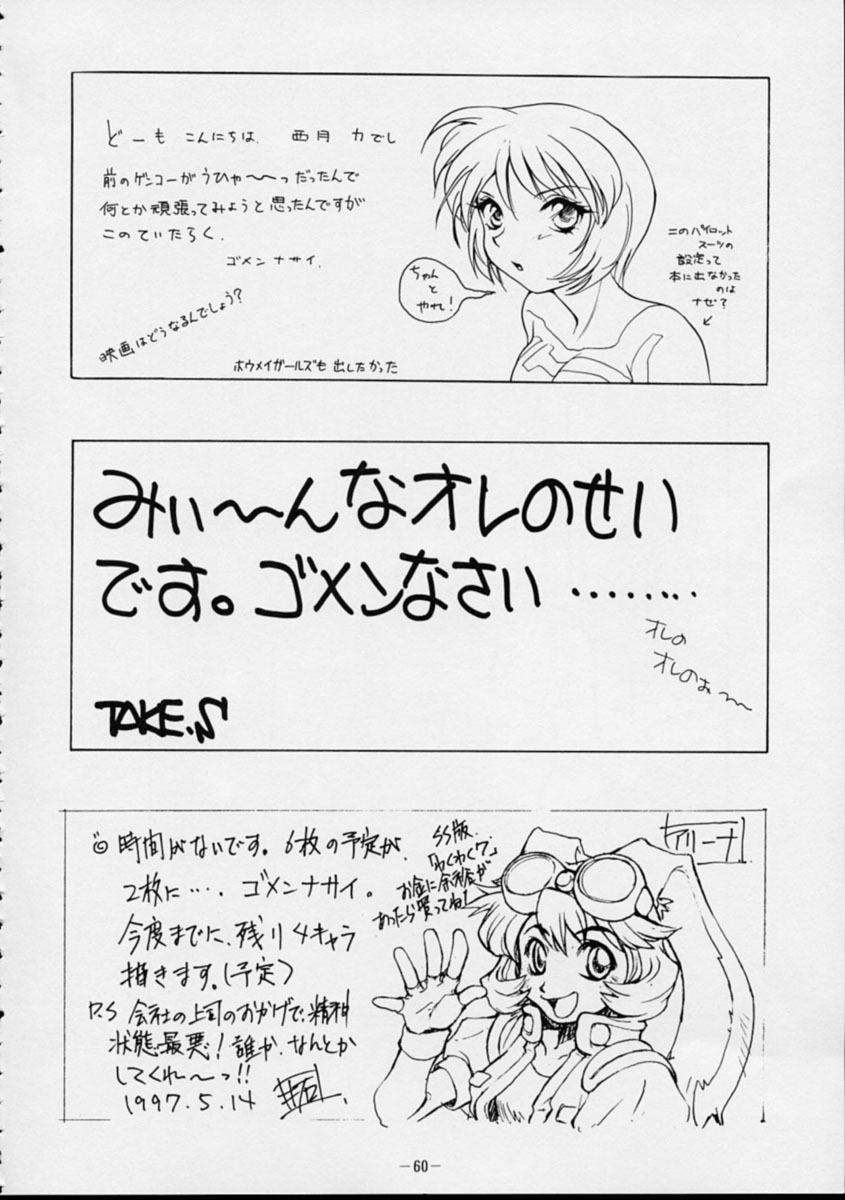 どーも こんにちは、 西月 力でし
前のゲンコーがうひゃ〜〜っだったんで
何とか頑張ってみようと思ったんですが
このていたらく．
ゴメンナサイ．
映画はどうなるんでしょう?
ホウメイガールズも出したかった
ちゃん
と
やれ!
このパイロット
スーツの
設定って
本に出なかった
のは
ナゼ?
みぃ〜〜んなオレのせい
です。ゴメンなさい ........
オレの
オレのぉ〜〜
TAKE.S
時間がないです。6枚の予定が、
2枚に…. ゴメンナサイ。
今度までに、残り4キャラ
描きます。(予定)
P.S 会社の上司のおかげで、精神
状態最悪! 誰か、なんとか
してくれ〜っ!!
1997.5.14
SS版.
「わくわく7」
お金に余裕が
あったら買ってね!
アリーナ
—60—